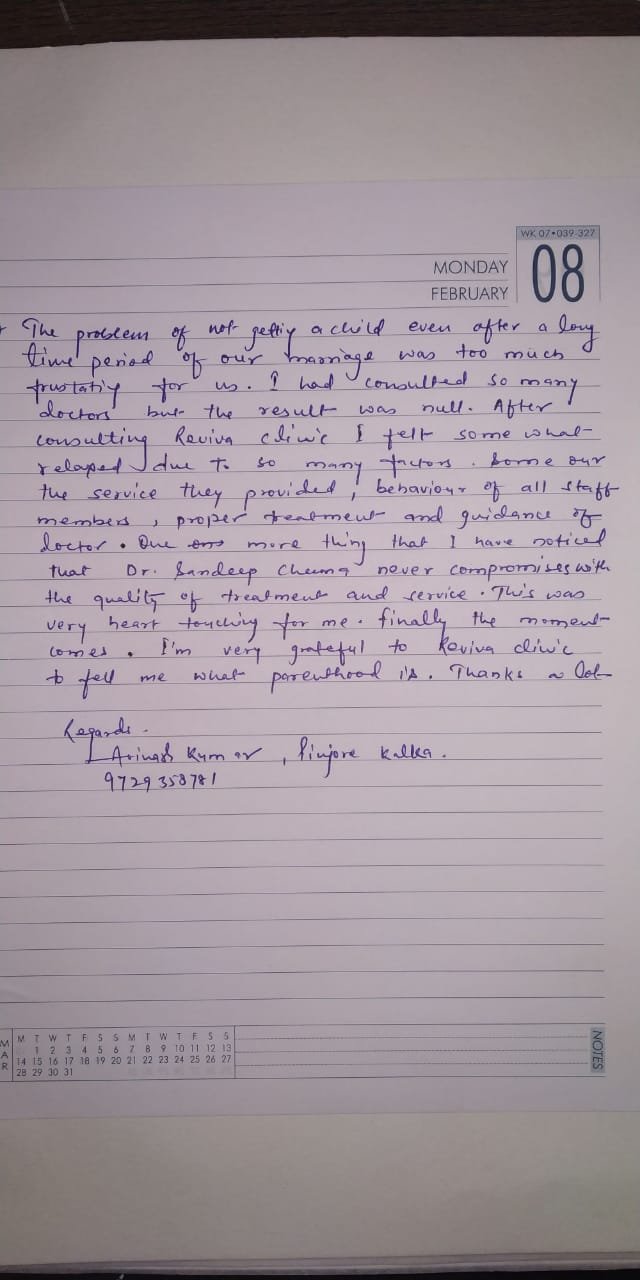 WK 07•039-327
MONDAY
08
FEBRUARY
The problem of not getting a child even after a long
time period of our marriage was too much
frustatig for us. I had consulted so many
doctors but the result was null. After
consulting Reviva clinic I felt some what
relaxed due to so many factors. Some our
the service they provided, behaviour of all staff
members, proper treatment and guidance of
doctor. One more thing that I have noticed
that Dr. Sandeep Cheema never compromises with
the quality of treatment and service. This was
very heart touching for me. finally the moment
comes. I'm very grateful to Reviva clinic
to fell me what parenthood is. Thanks a lot
Regards.
Avinash Kumar, Pinjore Kalka.
9729358781
MAR
M T W T F S S M T W T F S S
1 2 3 4 5 6 7 8 9 10 11 12 13
14 15 16 17 18 19 20 21 22 23 24 25 26 27
28 29 30 31
NOTES